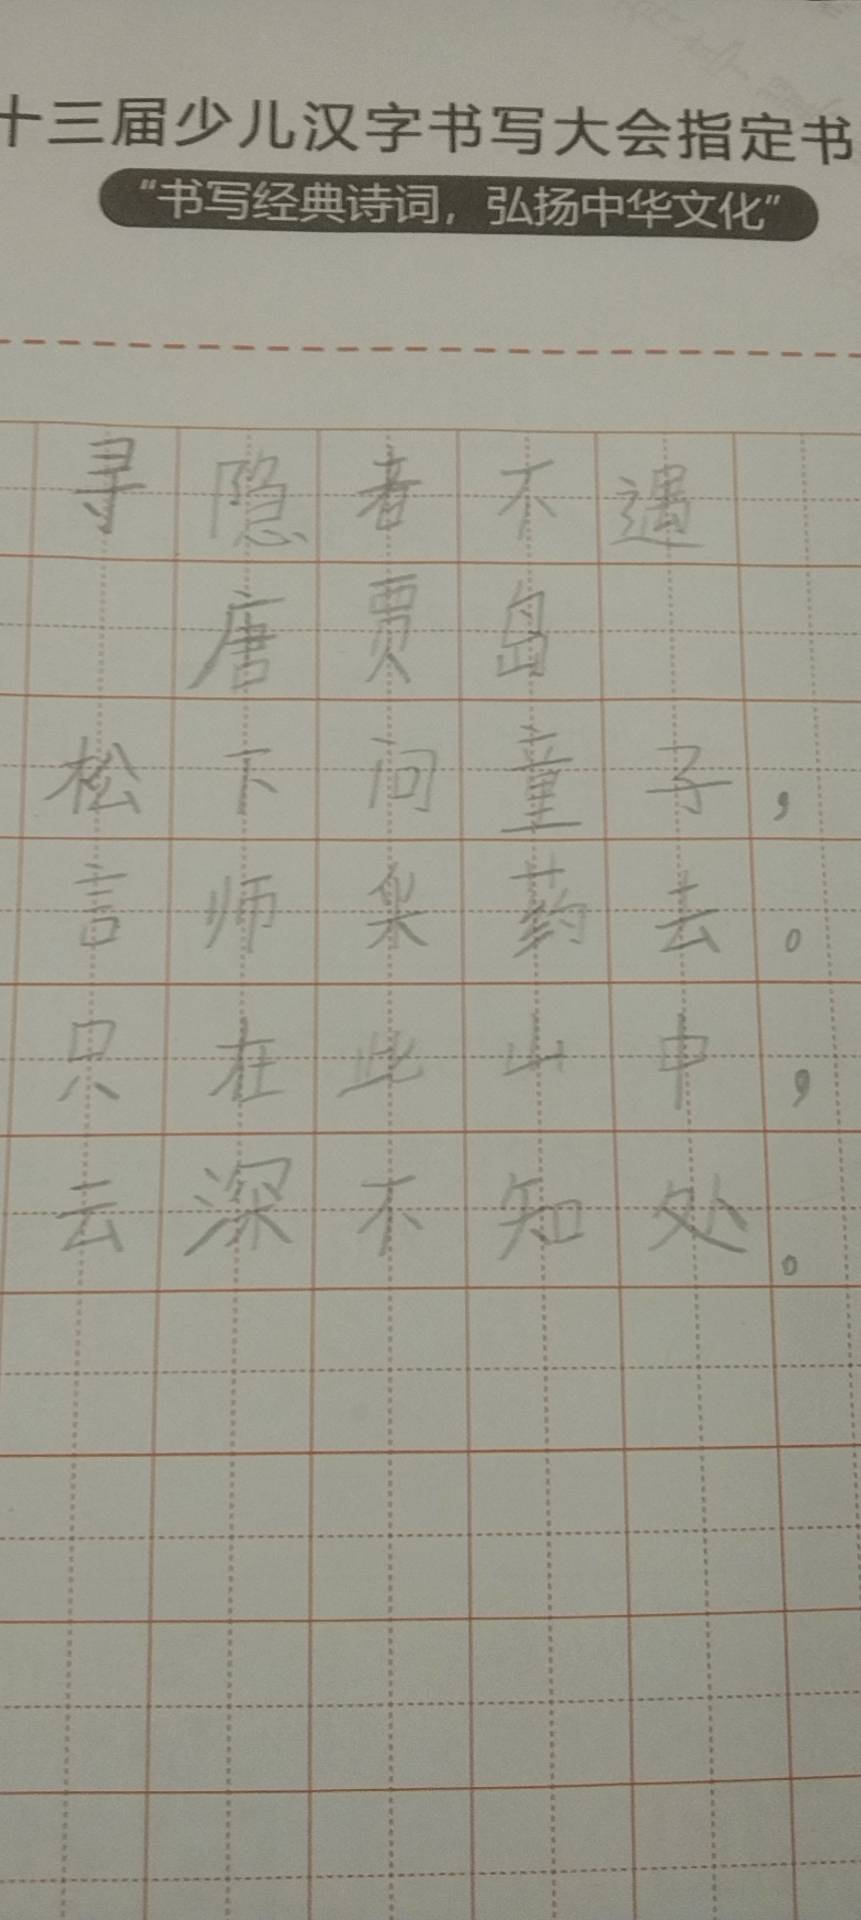 十三届少儿汉字书写大会指定书
“书写经典诗词，弘扬中华文化”
寻隐者不遇
唐贾岛
松下问童子，
言师采药去。
只在此山中，
云深不知处。